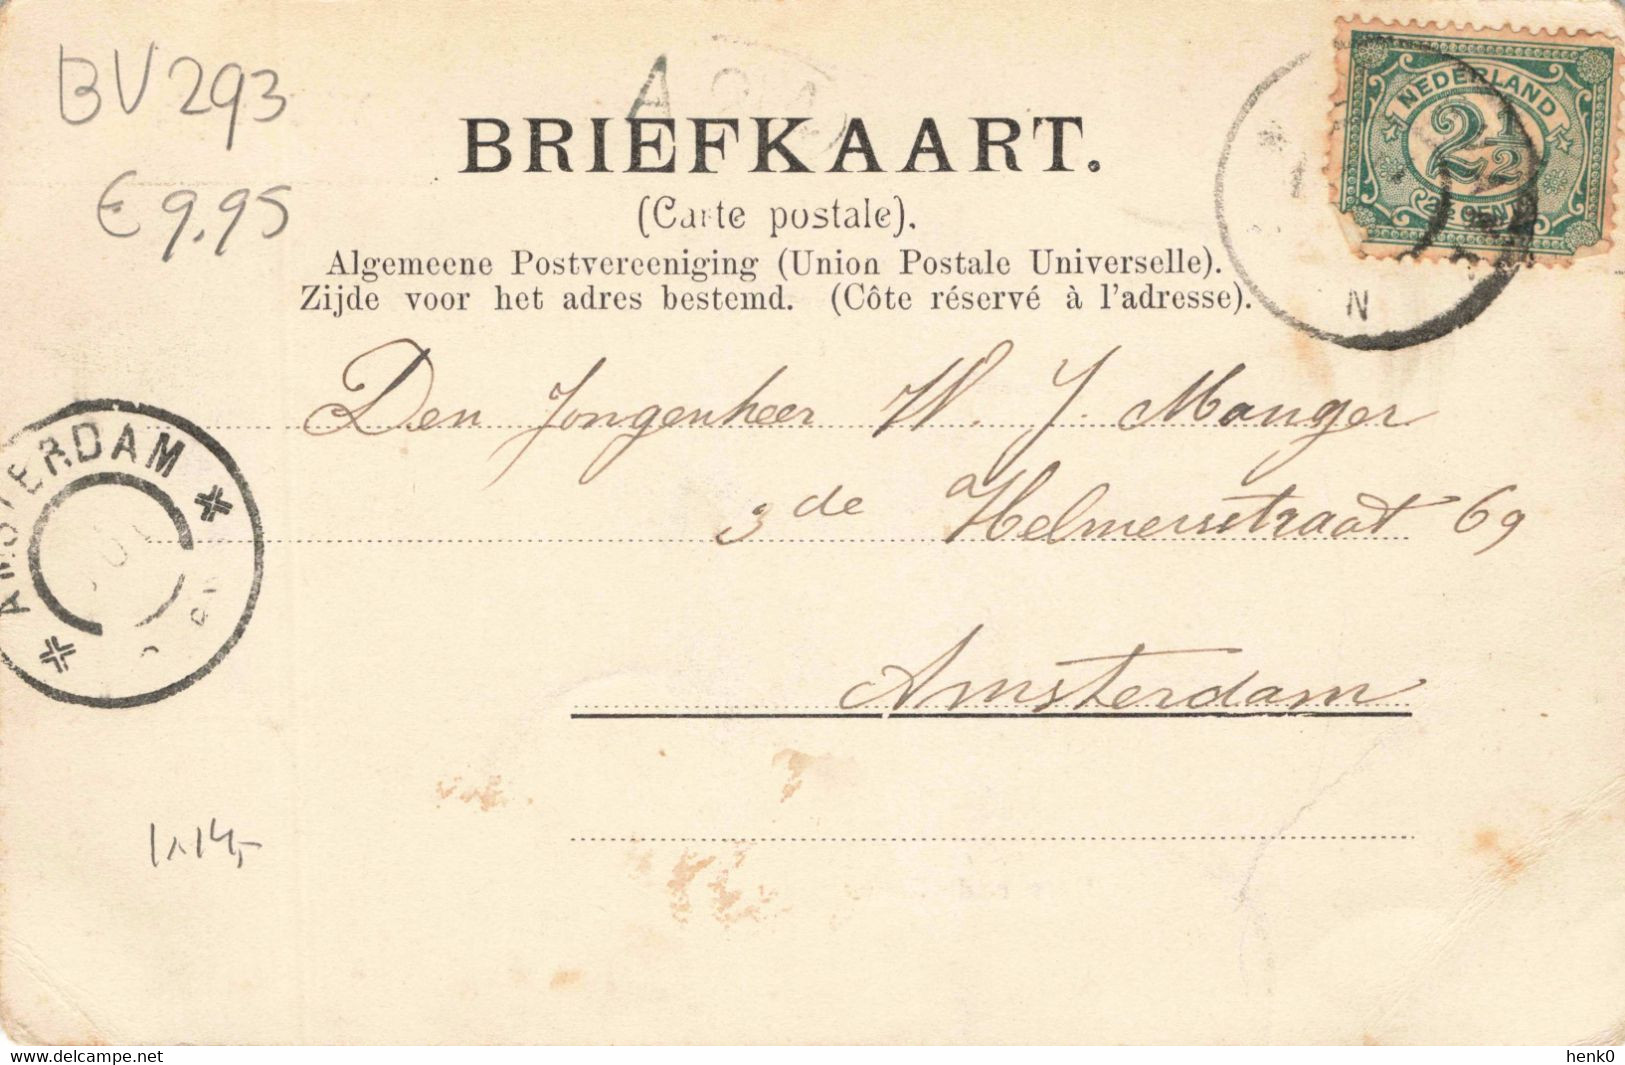 BV 293
€ 9,95
NEDERLAND
2 1/2
2½ CENT
BRIEFKAART.
(Carte postale).
Algemeene Postvereeniging (Union Postale Universelle).
Zijde voor het adres bestemd. (Côte réservé à l'adresse).
N
Den Jongenheer W. J. Manger
3de Helmersstraat 69
AMSTERDAM
Amsterdam
1x14,-
www.delcampe.net
henk0